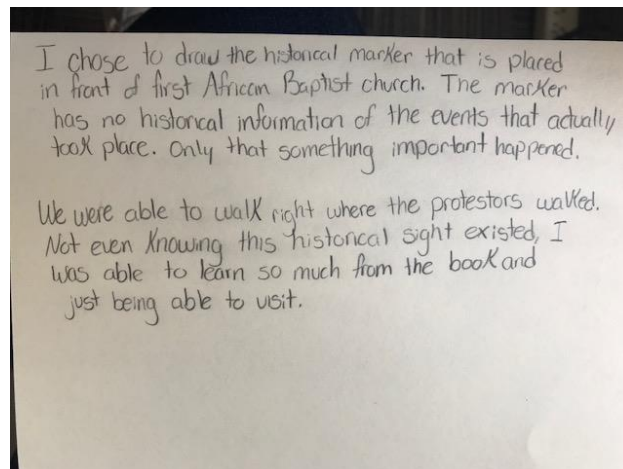 I chose to draw the historical marker that is placed
in front of first African Baptist church. The marker
has no historical information of the events that actually
took place. Only that something important happened.
We were able to walk right where the protestors walked.
Not even knowing this historical sight existed, I
was able to learn so much from the book and
just being able to visit.